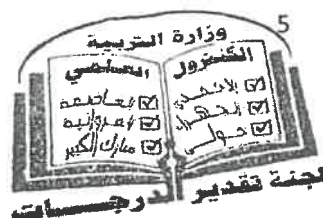 5
وزارة التربية
الكنترول
☑ الأحمدي
☑ الجهراء
☑ حولي
☑ العاصمة
☑ الفروانية
☑ مبارك الكبير
لجنة تقدير الدرجــــات